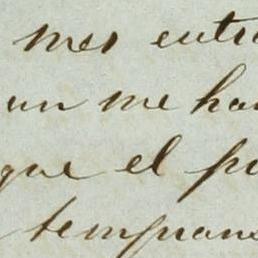 mes entra
un me han
que el pu
temprano